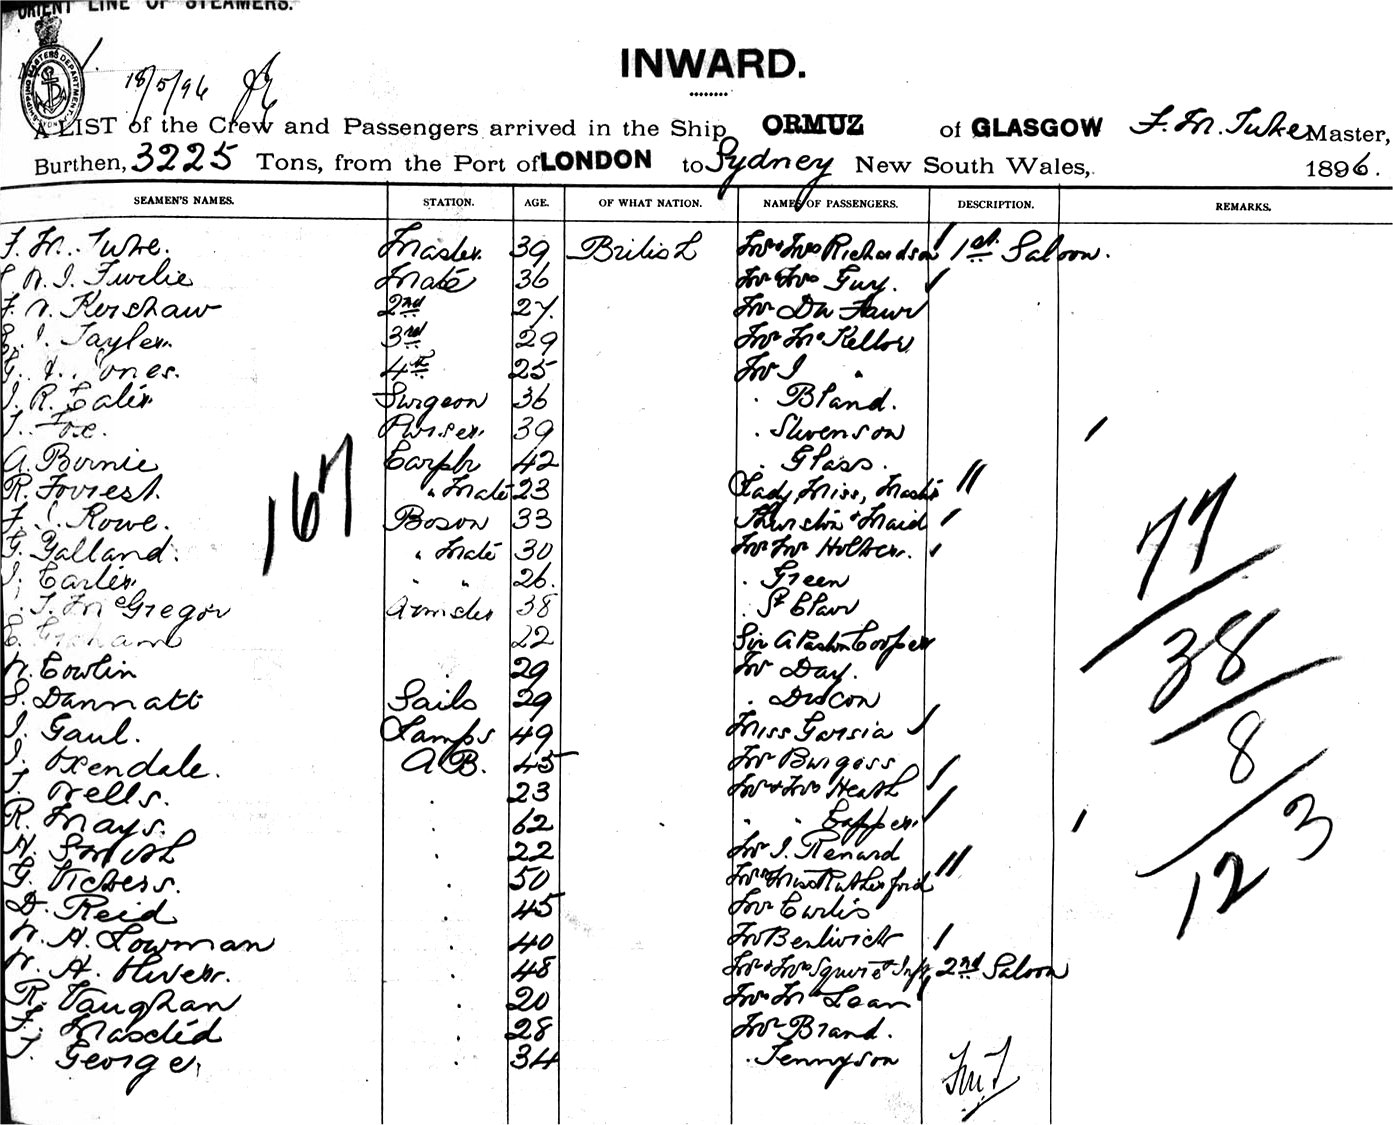 ORIENT LINE OF STEAMERS.
INWARD.
18/5/96
A LIST of the Crew and Passengers arrived in the Ship ORMUZ of GLASGOW F. M. Tuke Master,
Burthen, 3225 Tons, from the Port of LONDON to Sydney New South Wales, 1896.
SEAMEN'S NAMES. STATION. AGE. OF WHAT NATION. NAMES OF PASSENGERS. DESCRIPTION. REMARKS.
F. M. Tuke. Master 39 British Mr & Mrs Richardson 1st Saloon.
Mate 36 Mr Mrs Guy.
Kershaw 2nd 27 Mr Du Faur
Tayler 3rd 29 Mr McKellar
Jones. 4th 25 Mr J "
J. R. Cater Surgeon 36 . Bland.
Foxe. Purser 39 . Stevenson
A. Birnie Carptr 42 . Glass.
R. Forrest. " Mate 23 Lady, Miss, Master
F. J. Rowe. Boson 33 Thurston & Maid
G. Galland. " Mate 30 Mr Mrs Holter.
J. Carter " " 26. . Green
J. McGregor 38 . St Clair
Graham 22 Sir A Paston Cooper
W. Cowlin 29 Mr Day.
S. Dannatt Sails 29 .
J. Gaul. Lamps 49 Miss Garsia
J. Oxendale. A B. 45 Mr Burgess
J. Wells. . 23 Mr & Mrs Heath
R. Mays. . 62 " " Capper
H. Smith . 22 Mr J. Renard
G. Vickers. . 50 Mrs Miss Rutherford
D. Reid . 45 Mr Curtis
W. H. Lowman . 40 Mr Bentwick
W. H. Oliver. . 48 Mr & Mrs Squire & Inft 2nd Saloon
R. Vaughan . 20 Mrs McLean
F. . 28 Mr Brand.
T. George . 34 . Tennyson
167
77
38
8
123
FMT